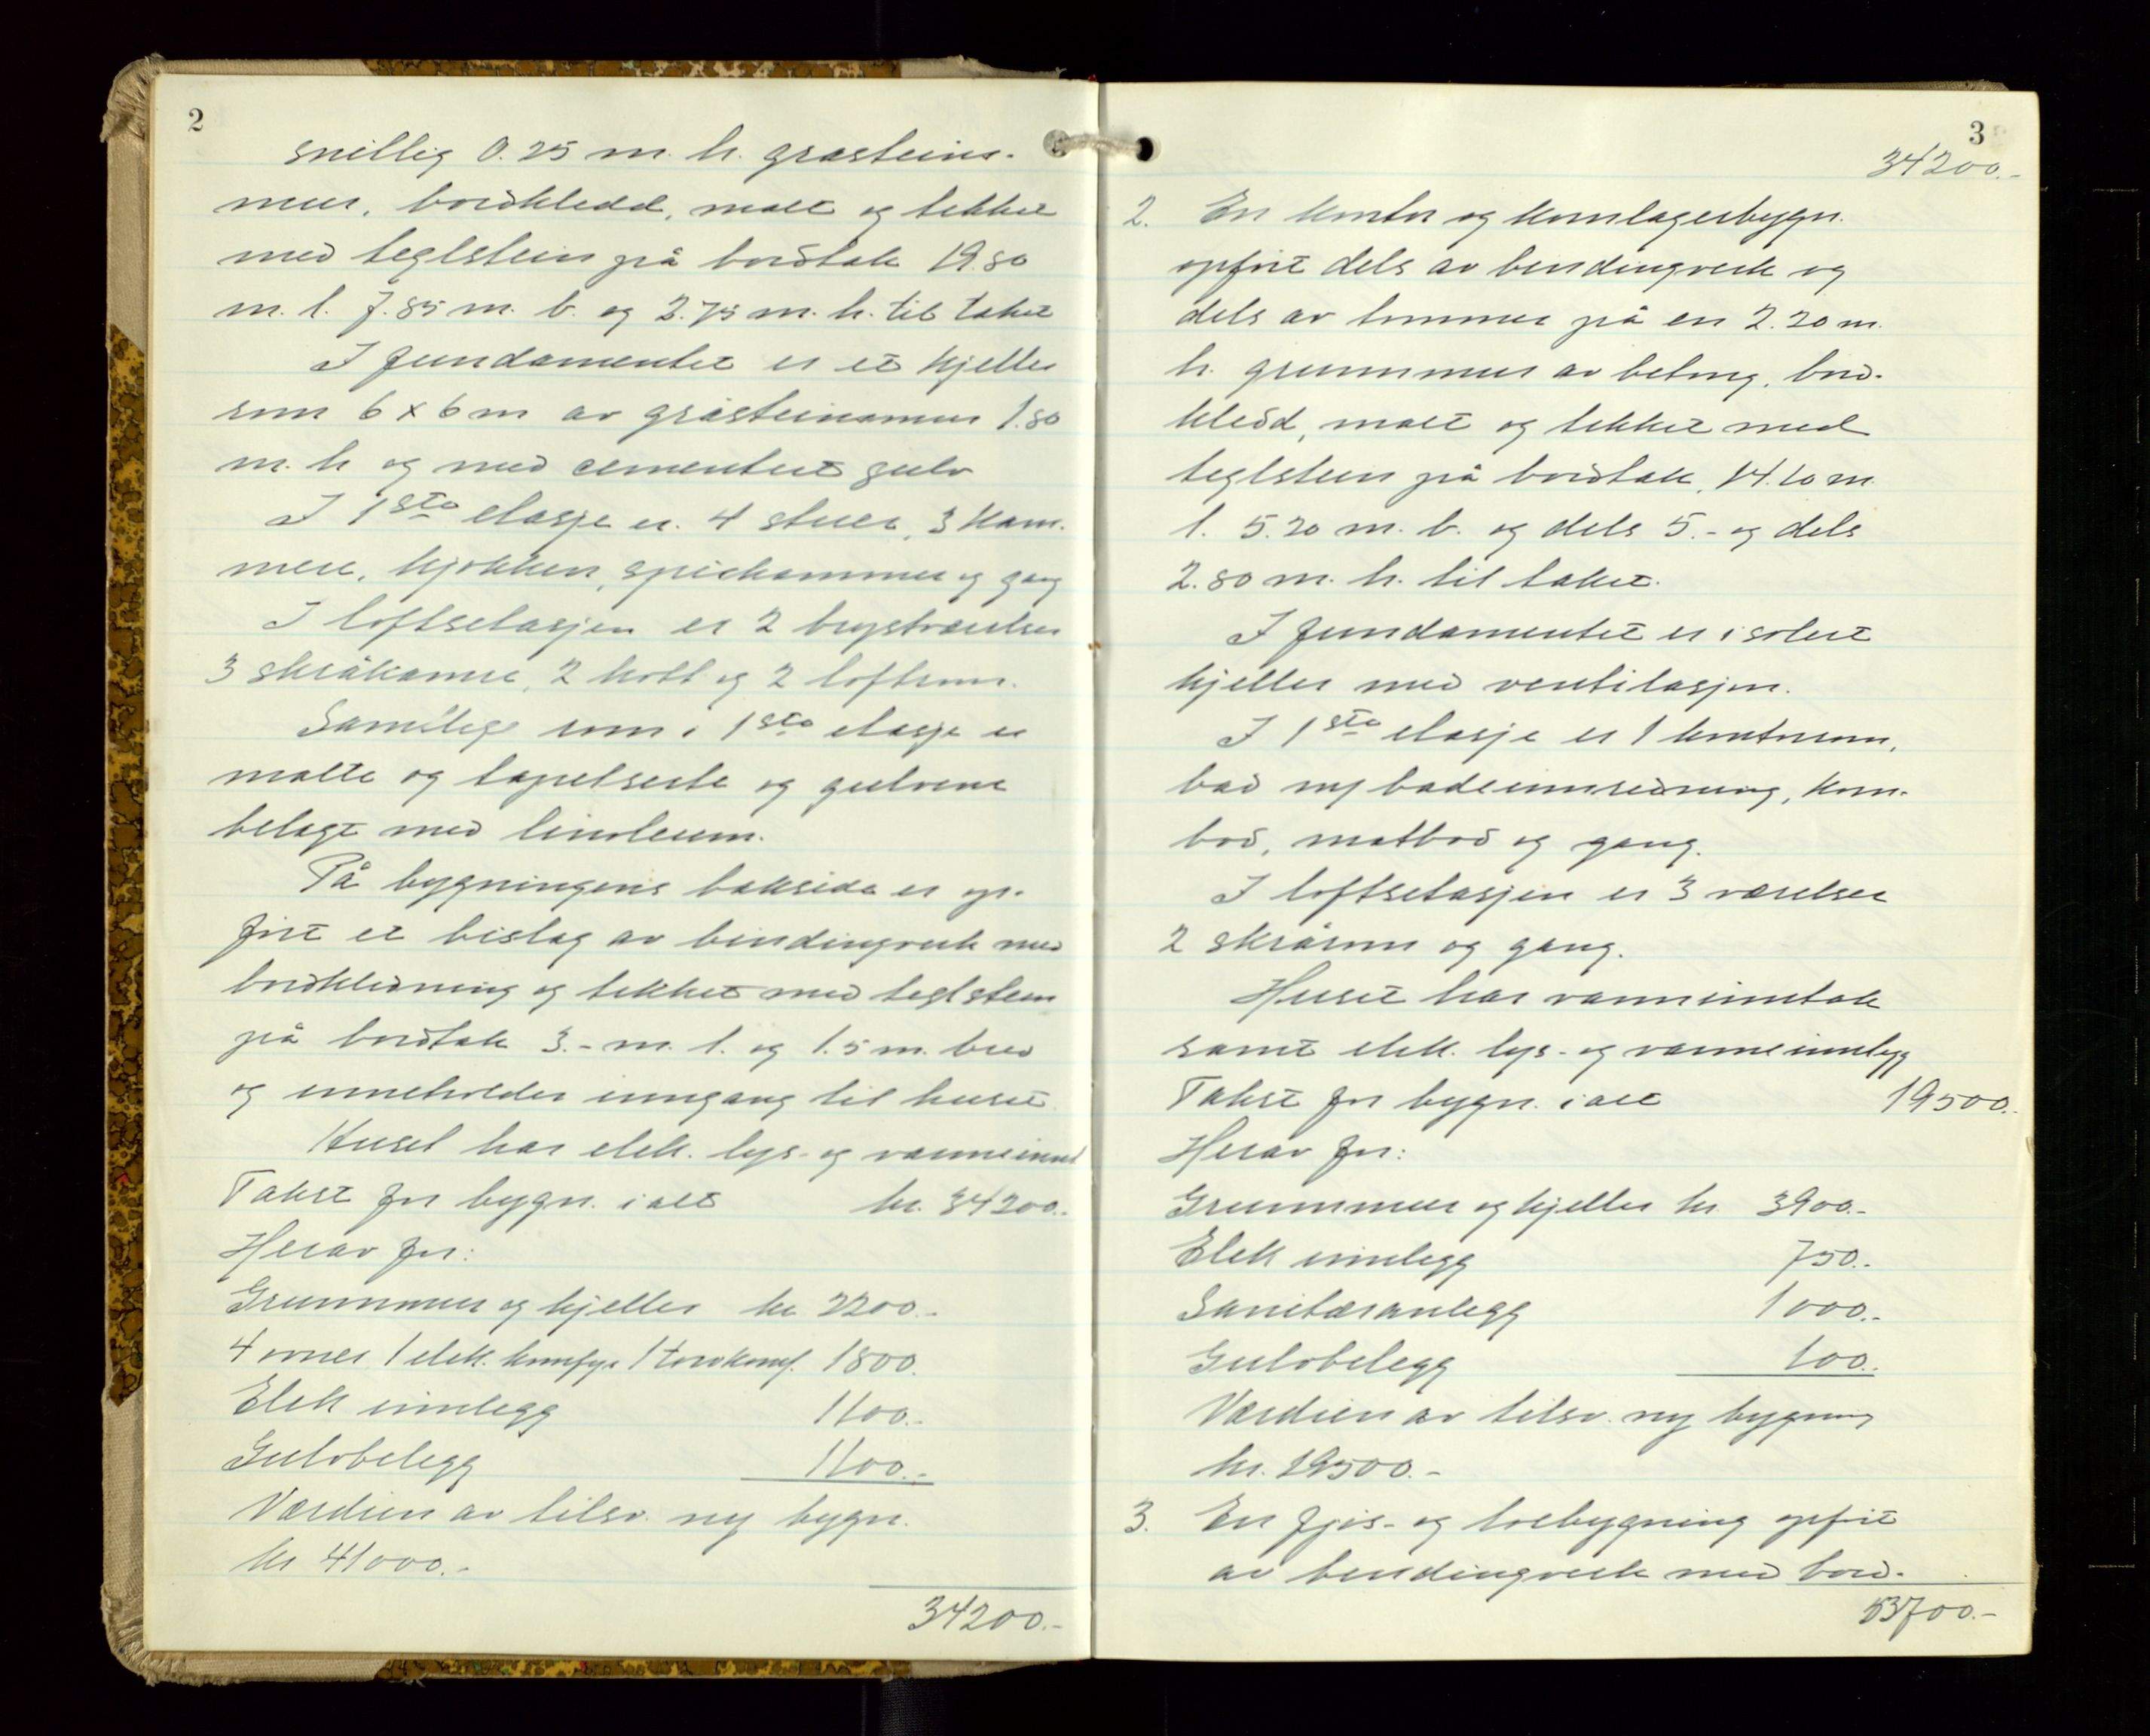 2
snillig 0.25 m. h. gråsteins-
mur, bordkledd, malt og tekket
med teglstein på bordtak 19.80
m. l. 7.85 m. b. og 2.75 m. h. til taket
I fundamentet er et kjeller
rom 6 x 6 m av gråsteinsmur 1.80
m. h og med cementert gulv
I 1ste etasje er 4 stuer, 3 kam-
mere, kjøkken, spiskammer og gang
I loftsetasjen er 2 brystværelser
3 skråkamre, 2 kott og 2 loftrom.
Samtlige rom i 1ste etasje er
malte og tapetserte og gulvene
belagt med linoleum.
På bygningens bakside er op-
ført et bislag av bindingverk med
bordkledning og tekket med teglstein
på bordtak 3.- m. l. og 1.5 m. bred
og inneholder inngang til huset
Huset har elek. lys- og varmeinnl
Takst for bygn. i alt kr. 34200.-
Herav for:
Grunnmur og kjeller kr 2200.-
4 ovner 1 elek. komfyr 1 torvkomf. 1800.
Elek innlegg 1100.-
Gulvbelegg 1100.-
Verdien av tilsv. ny bygn.
kr 41000.-
34200.-
3
34200.-
2. En kontor og kornlagerbygn.
opført dels av bindingverk og
dels av tømmer på en 2.20 m.
h. grunnmur av betong, bord-
kledd, malt og tekket med
teglstein på bordtak, 14.10 m.
l. 5.20 m. b. og dels 5.- og dels
2.80 m. h. til taket.
I fundamentet er isolert
kjeller med ventilasjon.
I 1ste etasje er 1 kontorrom,
bad m/ badeinnredning, korn-
bod, matbod og gang.
I loftsetasjen er 3 værelser
2 skrårom og gang.
Huset har vanninntak
samt elek. lys- og varmeinnlegg
Takst for bygn. i alt 19500.-
Herav for:
Grunnmur og kjeller kr 3900.-
Elek innlegg 750.-
Sanitæranlegg 1000.-
Gulvbelegg 100.-
Verdien av tilsv. ny bygning
kr. 19500.-
3. En fjøs- og løebygning opført
av bindingverk med bord-
53700.-